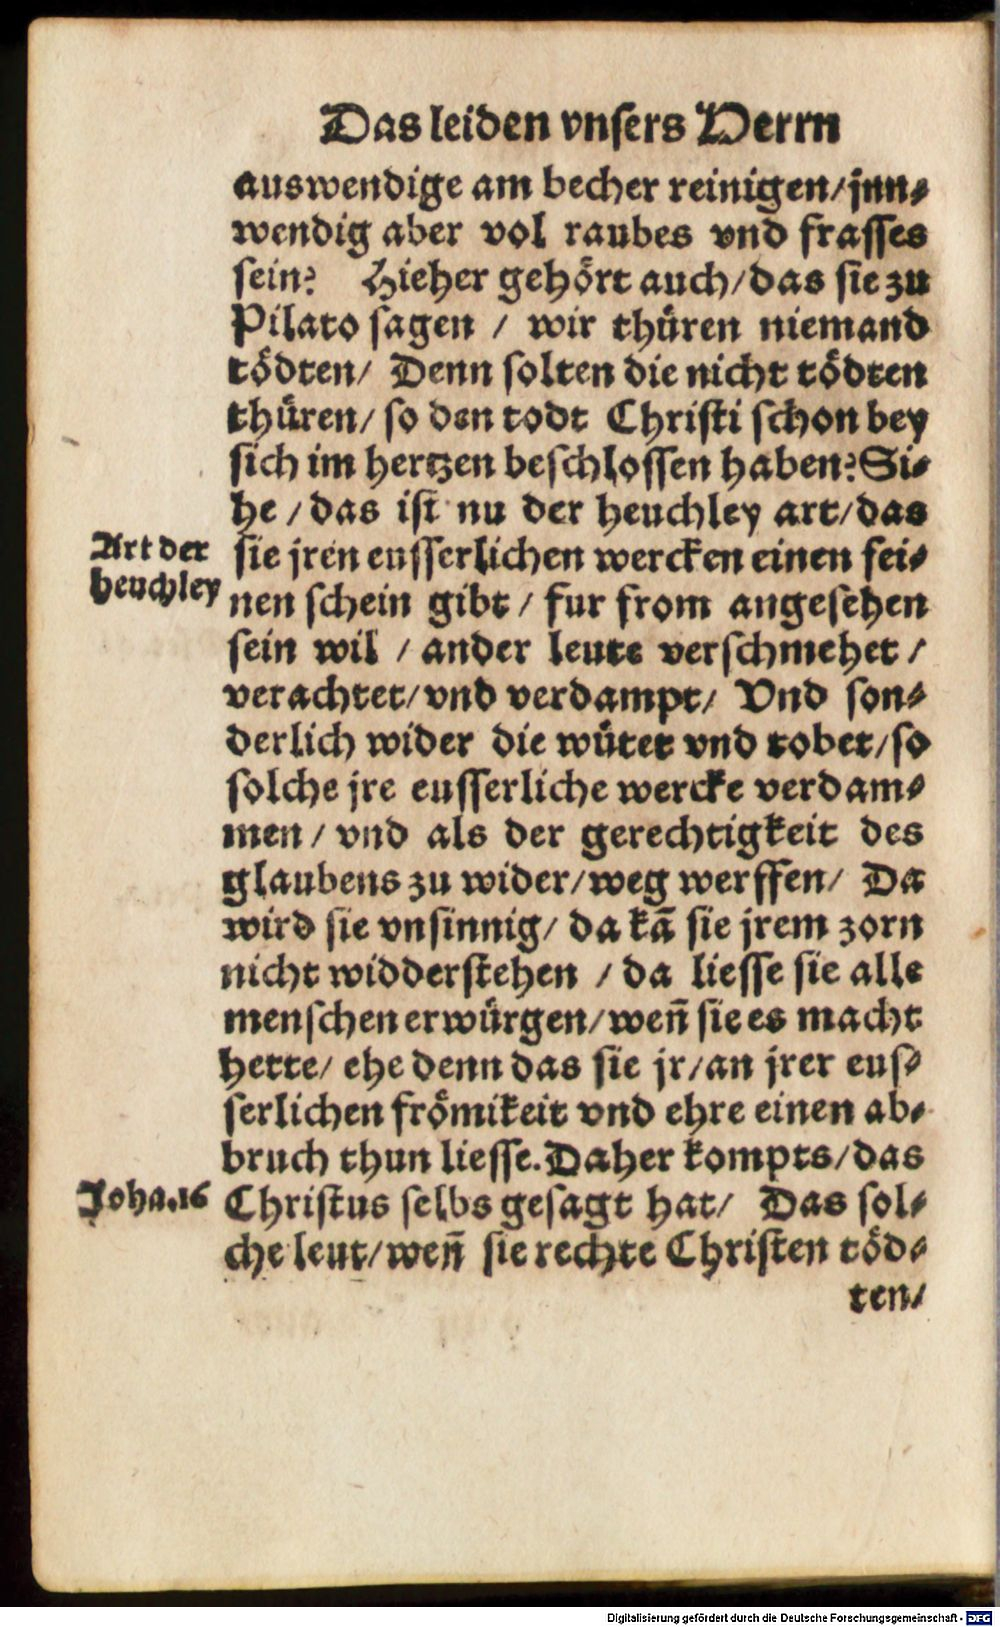 Das leiden vnsers Herrn
auswendige am becher reinigen/jnn⸗
wendig aber vol raubes vnd frasses
sein? Hieher gehört auch/das sie zu
Pilato sagen / wir thüren niemand
tödten/ Denn solten die nicht tödten
thüren/ so den todt Christi schon bey
sich im hertzen beschlossen haben? Si⸗
he /das ist nu der heuchley art/das
Art der
heuchley
sie jren eusserlichen wercken einen fei⸗
nen schein gibt / fur from angesehen
sein wil / ander leute verschmehet /
verachtet/vnd verdampt/ Vnd son⸗
derlich wider die wütet vnd tobet/so
solche jre eusserliche wercke verdam⸗
men / vnd als der gerechtigkeit des
glaubens zu wider/weg werffen/ Da
wird sie vnsinnig/ da kā sie jrem zorn
nicht widderstehen / da liesse sie alle
menschen erwürgen/ weñ sie es macht
hette/ ehe denn das sie jr/an jrer eus⸗
serlichen frömikeit vnd ehre einen ab⸗
bruch thun liesse. Daher kompts/das
Joha.16
Christus selbs gesagt hat/ Das sol⸗
che leut/weñ sie rechte Christen töd⸗
ten/
Digitalisierung gefördert durch die Deutsche Forschungsgemeinschaft - DFG